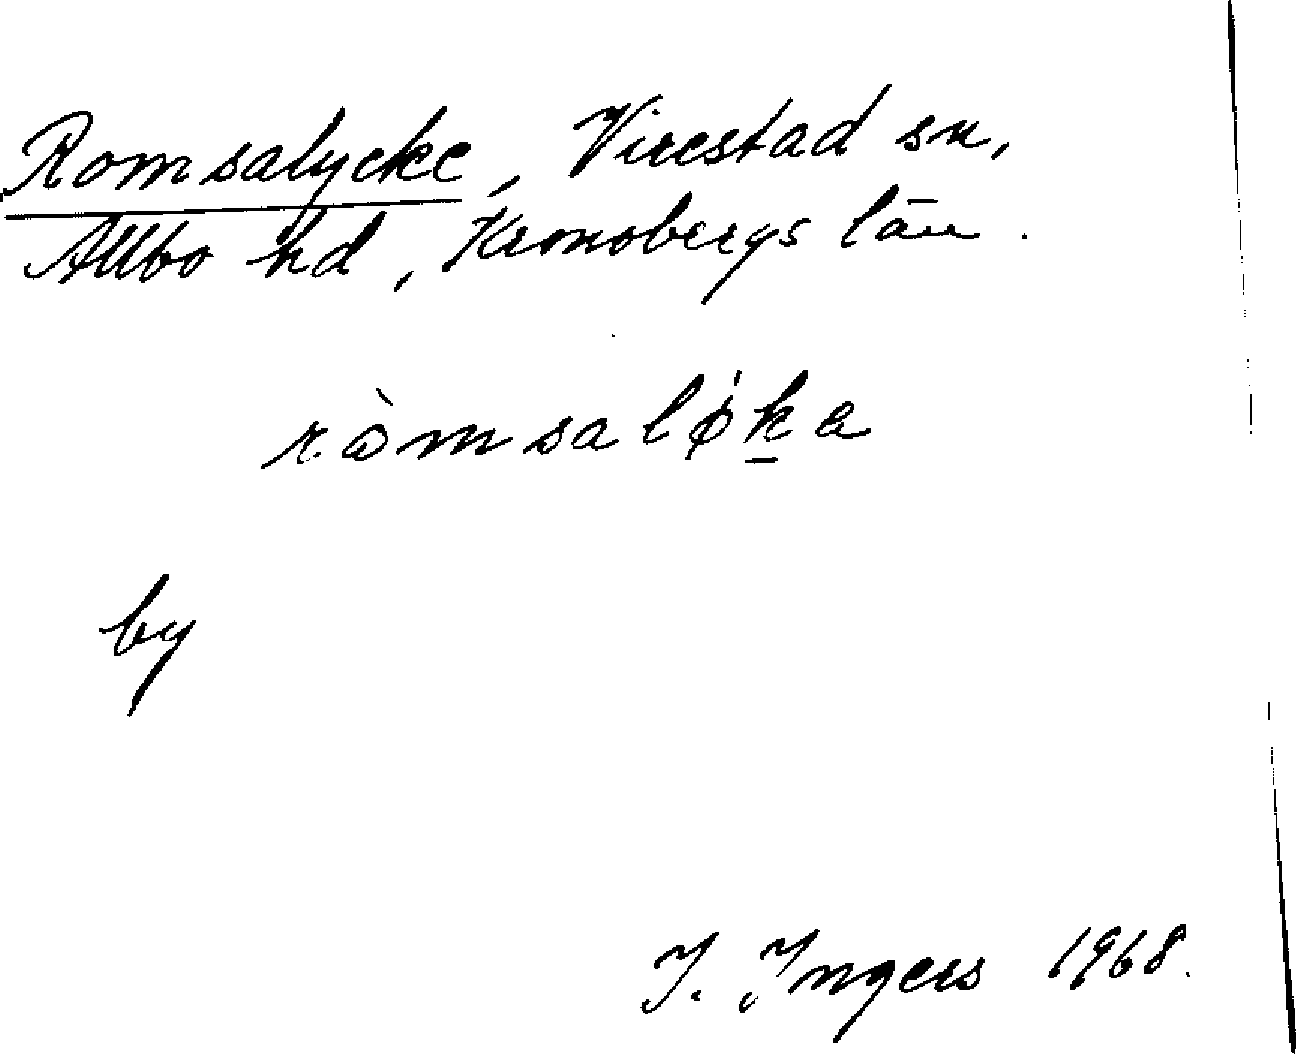 Romsalycke, Virestad sn,
Allbo hd, Kronobergs län.
ròmsaløka
by
I. Ingers 1968.